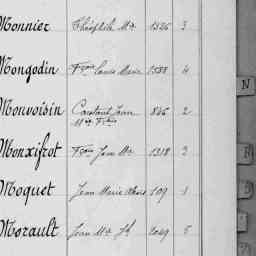 Monnier Théophile Mie 1526 3
Mongodin Fçois Louis Marie 1588 4
Monvoisin Constant Jean 846 2
Mie Fçois
Monxifrot Fçois Jean Mie 1318 2
Moquet Jean Marie 109 1
Morault Jean Mie Jh 2049 5
N